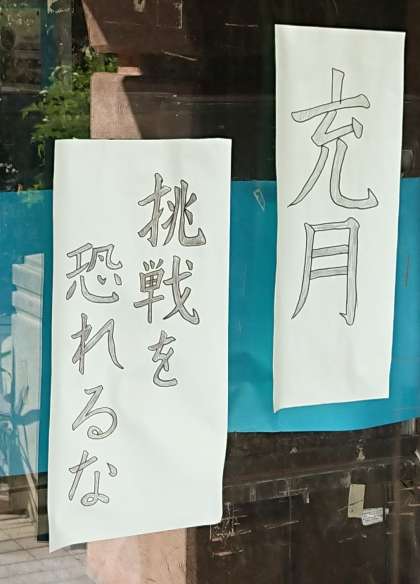 充月
挑戦を
恐れるな